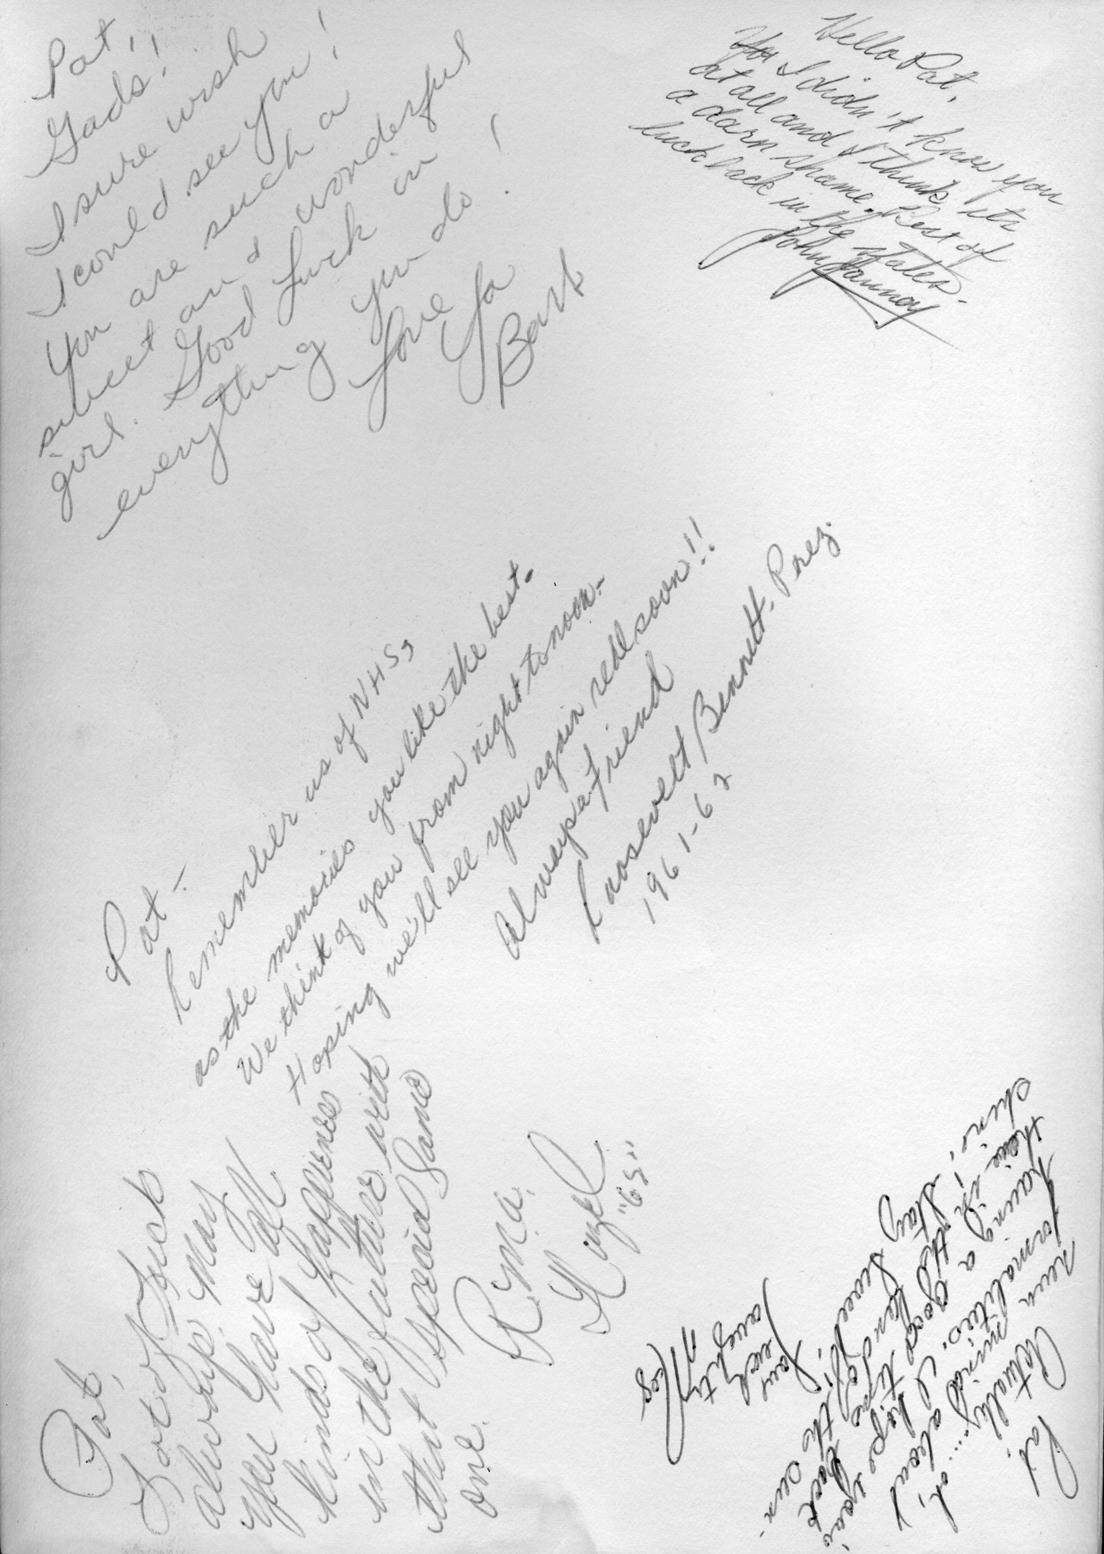 Pat,
Gads!!
I sure wish
I could see you!
You are such a
sweet and wonderful
girl. Good luck in
everything you do!
Love Ya
Barb
Hello Pat,
I didn't know you
at all and I think its
a darn shame. Best of
luck back in the States.
John
Pat –
Remember us of NHS
as the memories you like the best.
We think of you from night to noon.
Hoping we'll see you again real soon!!
Always a friend
Roosevelt Bennett - Prez.
1961-62
Pat,
Lots of luck
always. May
you have all
kinds of happiness
in the future with
that special some
one.
Rma
"63"
Pat.
Actually.... oh,
never mind about
formalities. I hope you're
having a good time back
here in the
Stay sweet,
Love
naughty